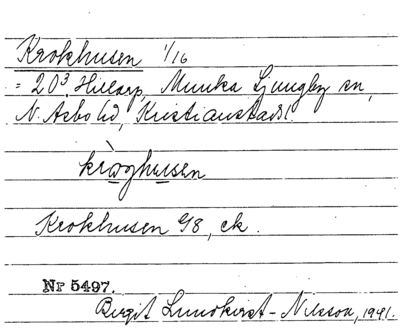 Krokhusen 1/16
= 20³ Hillarp, Munka Ljungby sn,
N. Åsbo hd, Kristianstads l
kròghusen
Krokhusen 4/8, ek.
Nr 5497.
Birgit Lundkvist-Nilsson, 1941.